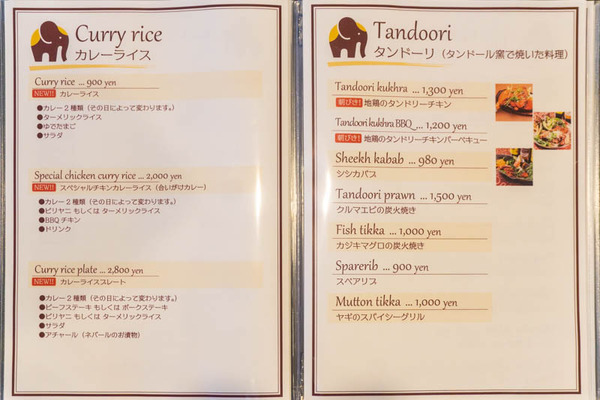 Curry rice
カレーライス
Curry rice ... 900 yen
NEW!! カレーライス
●カレー2種類（その日によって変わります。）
●ターメリックライス
●ゆでたまご
●サラダ
Special chicken curry rice ... 2,000 yen
NEW!! スペシャルチキンカレーライス（合いがけカレー）
●カレー2種類（その日によって変わります。）
●ビリヤニ もしくは ターメリックライス
●BBQ チキン
●ドリンク
Curry rice plate ... 2,800 yen
NEW!! カレーライスプレート
●カレー2種類（その日によって変わります。）
●ビーフステーキ もしくは ポークステーキ
●ビリヤニ もしくは ターメリックライス
●サラダ
●アチャール（ネパールのお漬物）
Tandoori
タンドーリ（タンドール窯で焼いた料理）
Tandoori kukhra ... 1,300 yen
朝びき! 地鶏のタンドリーチキン
Tandoori kukhra BBQ ... 1,200 yen
朝びき! 地鶏のタンドリーチキンバーベキュー
Sheekh kabab ... 980 yen
シシカバブ
Tandoori prawn ... 1,500 yen
クルマエビの炭火焼き
Fish tikka ... 1,000 yen
カジキマグロの炭火焼き
Sparerib ... 900 yen
スペアリブ
Mutton tikka ... 1,000 yen
ヤギのスパイシーグリル